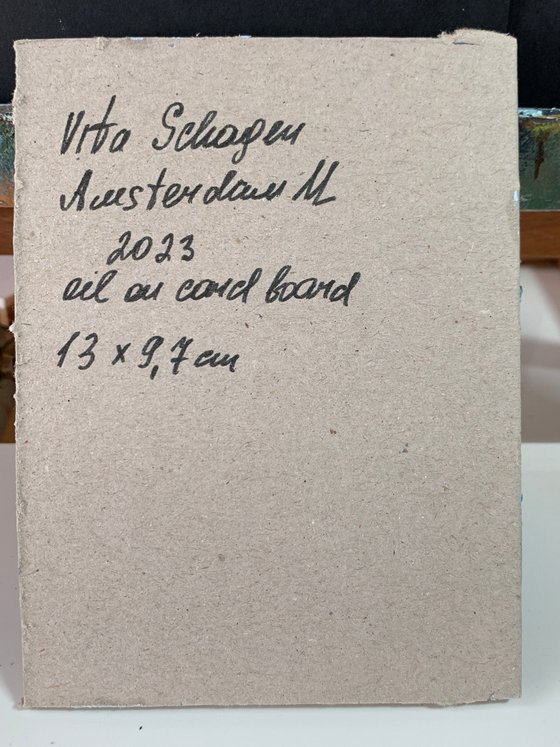 Vita Schagen
Amsterdam M
2023
oil on card board
13 x 9,7 cm